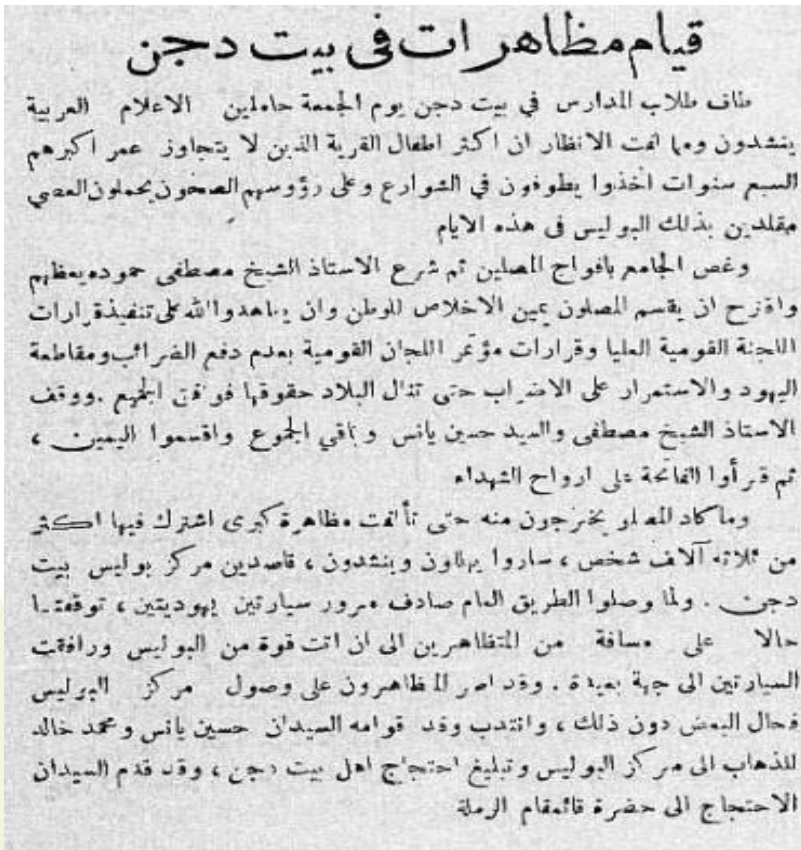 قيام مظاهرات في بيت دجن
طاف طلاب المدارس في بيت دجن يوم الجمعة حاملين الاعلام العربية
ينشدون ومما لفت الانظار ان اكثر اطفال القرية الذين لا يتجاوز عمر اكبرهم
السبع سنوات اخذوا يطوفون في الشوارع وعلى رؤوسهم الصحون يحملون العصي
مقلدين بذلك البوليس في هذه الايام
وغص الجامع بافواج المصلين ثم شرع الاستاذ الشيخ مصطفى حموده يعظهم
واقترح ان يقسم المصلون يمين الاخلاص للوطن وان يعاهدوا الله على تنفيذ قرارات
اللجنة القومية العليا وقرارات مؤتمر اللجان القومية بعدم دفع الضرائب ومقاطعة
اليهود والاستمرار على الاضراب حتى تنال البلاد حقوقها فوافق الجميع . ووقف
الاستاذ الشيخ مصطفى والسيد حسين يانس وباقي الجموع واقسموا اليمين ،
ثم قرأوا الفاتحة على ارواح الشهداء
وما كاد المصلو يخرجون منه حتى تألفت مظاهرة كبرى اشترك فيها اكثر
من ثلاثه آلاف شخص ، ساروا يهللون وينشدون ، قاصدين مركز بوليس بيت
دجن . ولما وصلوا الطريق العام صادف مرور سيارتين يهوديتين ، توقفتا
حالا على مسافة من المتظاهرين الى ان اتت قوة من البوليس ورافقت
السيارتين الى جهة بعيدة . وقد اصر المظاهرون على وصول مركز البوليس
فحال البعض دون ذلك ، وانتدب وفد قوامه السيدان حسين يانس ومحمد خالد
للذهاب الى مركز البوليس وتبليغ احتجاج اهل بيت دجن ، وقد قدم السيدان
الاحتجاج الى حضرة قائمقام الرملة